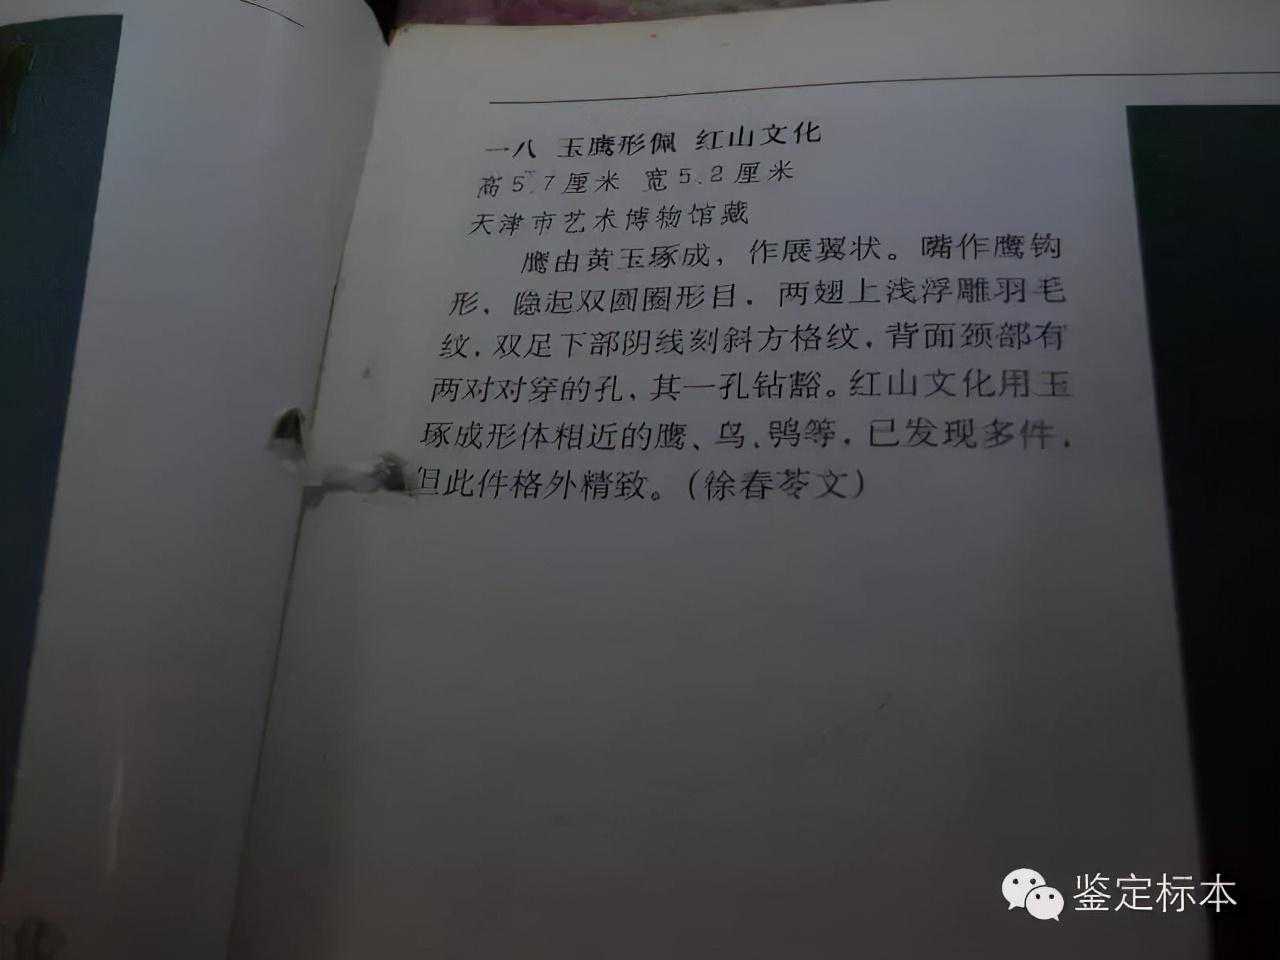 一八 玉鹰形佩 红山文化
高5.7厘米 宽5.2厘米
天津市艺术博物馆藏
鹰由黄玉琢成，作展翼状。嘴作鹰钩
形，隐起双圆圈形目，两翅上浅浮雕羽毛
纹，双足下部阴线刻斜方格纹，背面颈部有
两对对穿的孔，其一孔钻豁。红山文化用玉
琢成形体相近的鹰、鸟、鸮等，已发现多件，
但此件格外精致。（徐春苓文）
鉴定标本